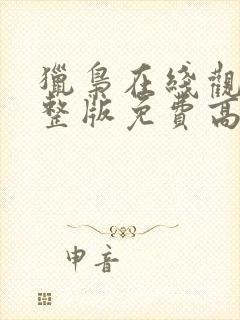 獵梟在綫觀
整版免費高
申音